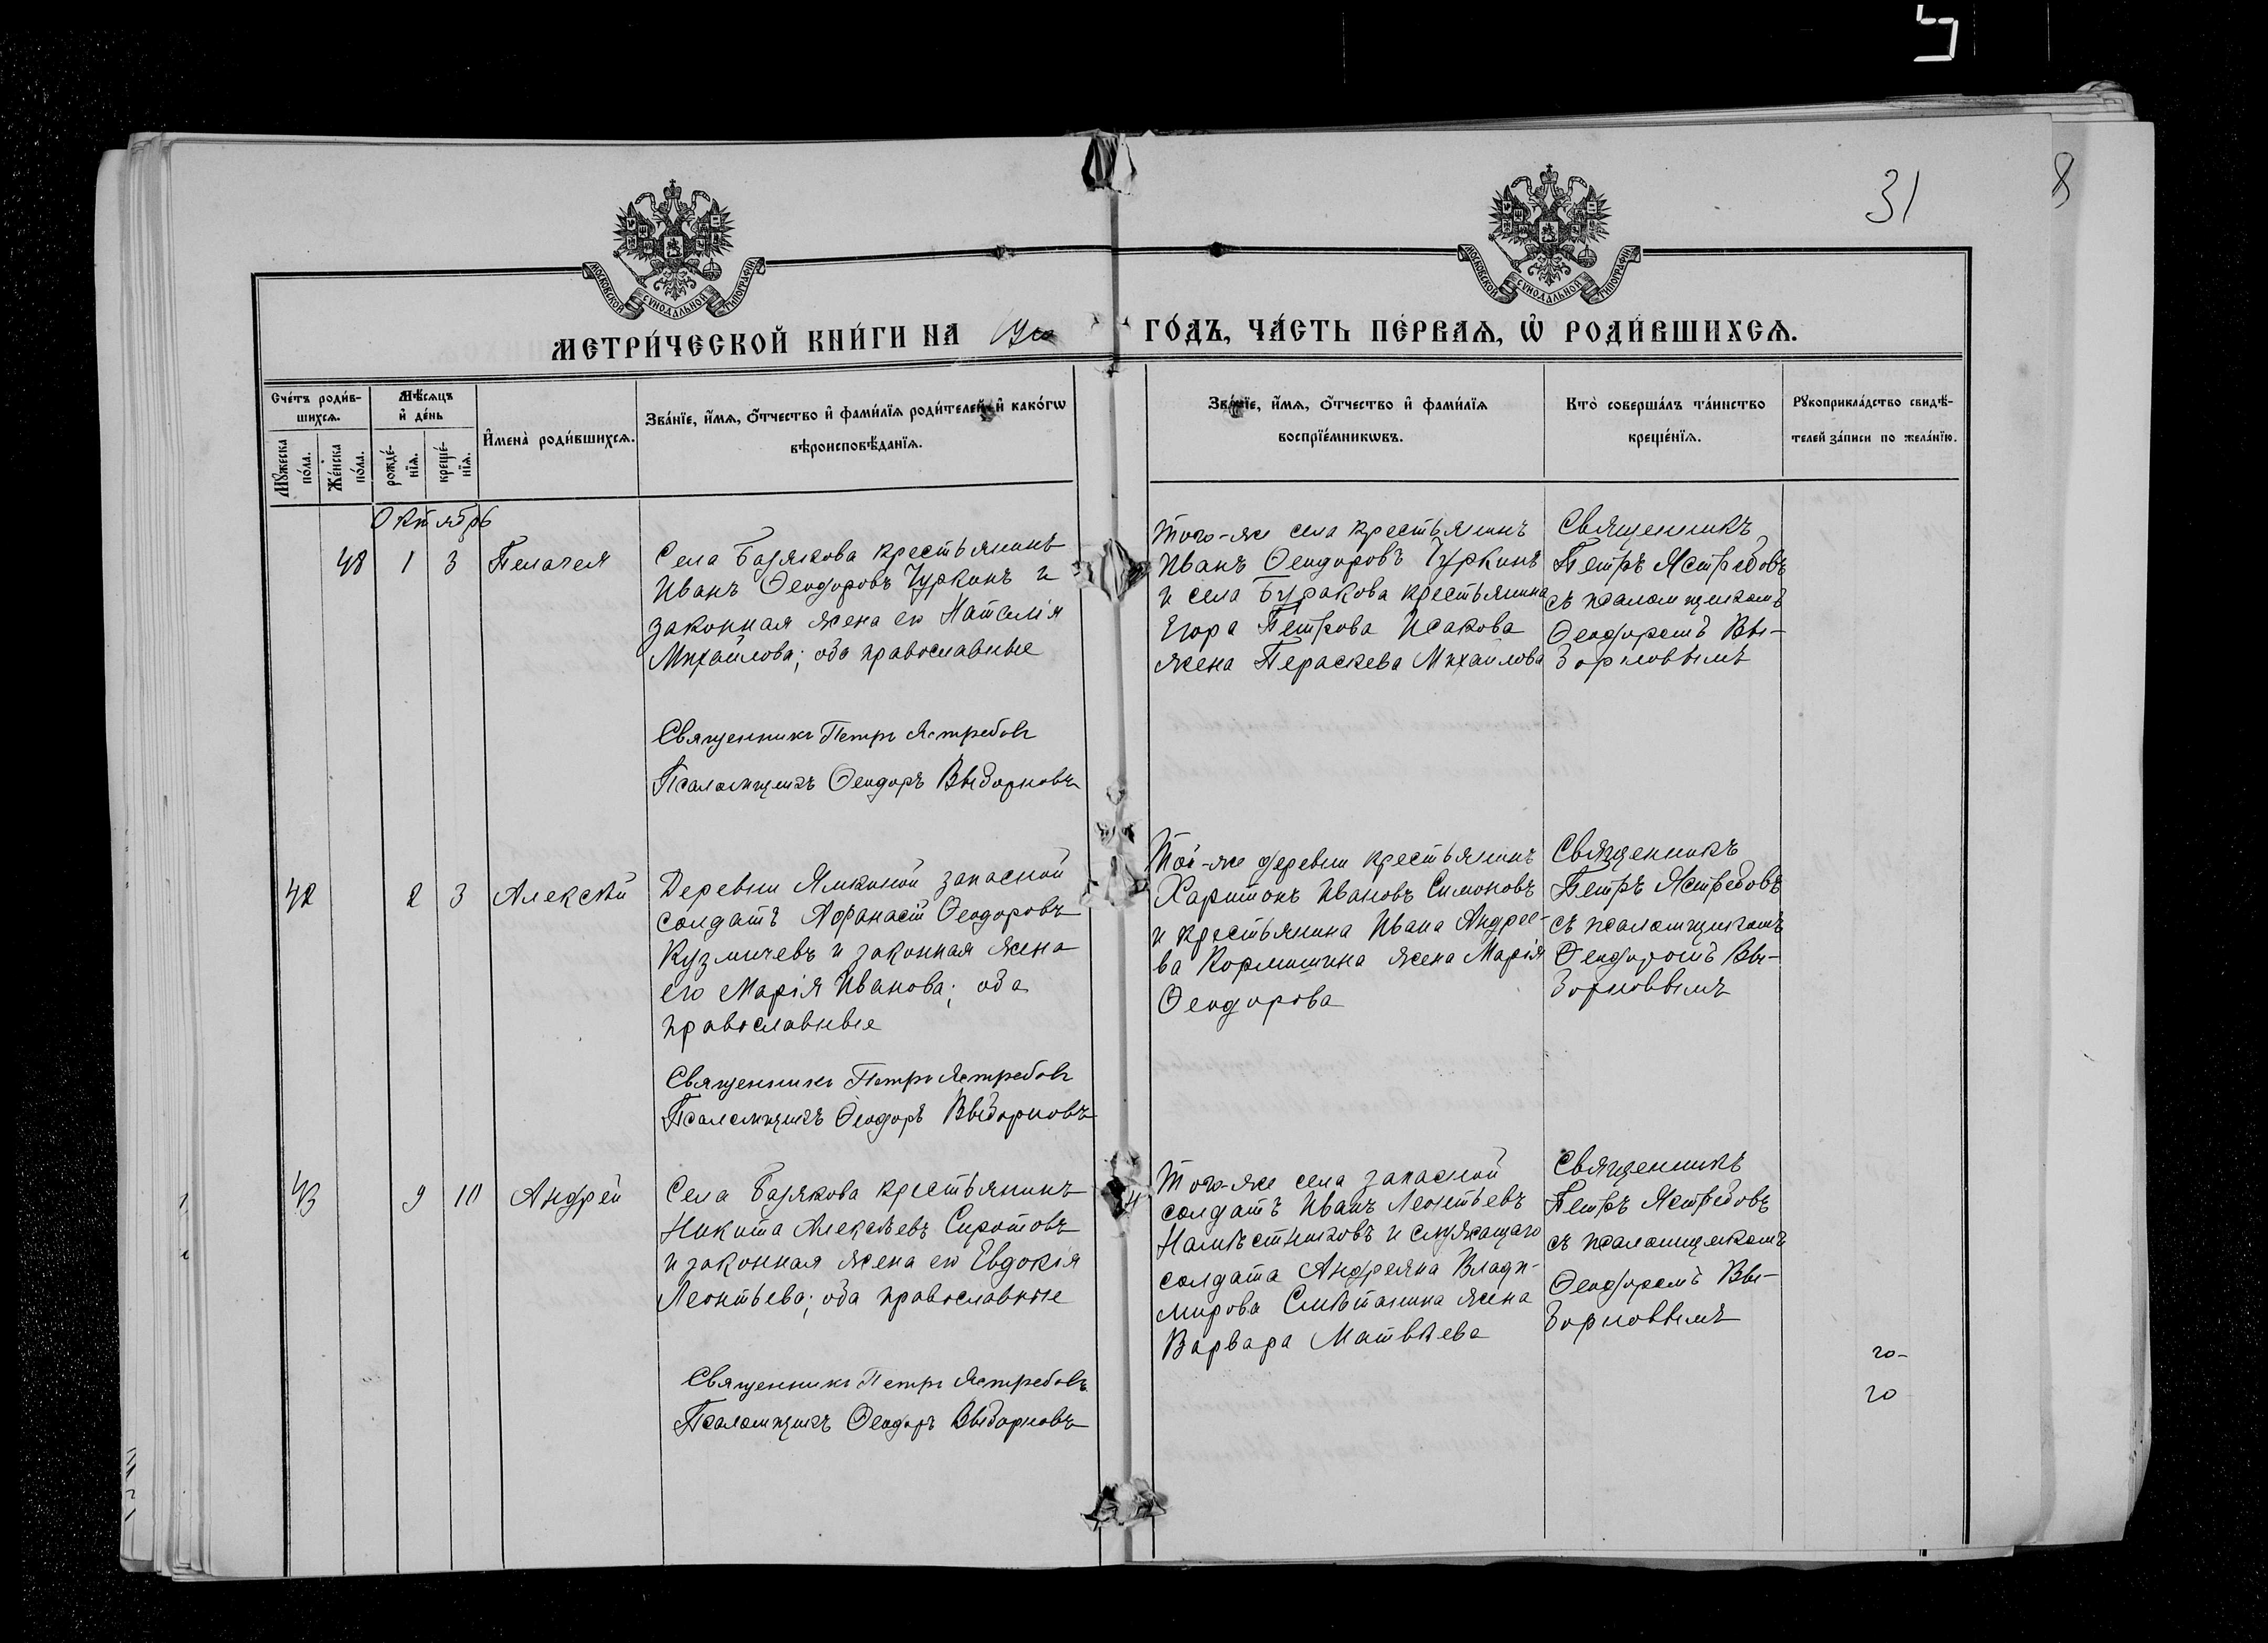 31
8
МОСКОВСКОЙ СѴНОДАЛЬНОЙ ТИПОГРАФІИ
МОСКОВСКОЙ СѴНОДАЛЬНОЙ ТИПОГРАФІИ
МЕТРИ́ЧЕСКОЙ КНИ́ГИ НА ГО́ДЪ, ЧА́СТЬ ПЕ́РВАѦ, Ѡ҆ РОДИ́ВШИХСѦ.
Сче́тъ роди́в-
шихсѧ.
Мꙋ́жеска по́ла.
Же́нска по́ла.
Мѣ́сѧцъ
и҆ де́нь
рожде́-
нїѧ.
креще́-
нїѧ.
И҆мена̀ роди́вшихсѧ.
Зва́нїе, и҆́мѧ, о҆́тчество и҆ фами́лїѧ роди́телей, и҆ како́гѡ
вѣроисповѣ́данїѧ.
Зва́нїе, и҆́мѧ, о҆́тчество и҆ фами́лїѧ
воспрїе́мникѡвъ.
Кто̀ соверша́лъ та́инство
креще́нїѧ.
Рꙋкоприкла́дство свидѣ́-
телей за́писи по жела́нїю.
Октябрь
48 1 3 Пелагея
Села Базякова крестьянинъ
Иванъ Ѳеодоровъ Чуркинъ и
законная жена его Наталія
Михайлова; оба православные
Священникъ Петръ Ястребовъ
Псаломщикъ Ѳеодоръ Выборновъ
Того-же села крестьянинъ
Иванъ Ѳеодоровъ Чуркинъ
и села Буракова крестьянина
Егора Петрова Исакова
жена Параскева Михайлова
Священникъ
Петръ Ястребовъ
съ псаломщикомъ
Ѳеодоромъ Вы-
борновымъ
42 2 3 Алексѣй
Деревни Ямкиной запасной
солдатъ Афанасій Ѳеодоровъ
Кузмичевъ и законная жена
его Марія Иванова; оба
православные
Священникъ Петръ Ястребовъ
Псаломщикъ Ѳеодоръ Выборновъ
Той-же деревни крестьянинъ
Харитонъ Ивановъ Симоновъ
и крестьянина Ивана Андрее-
ва Кормишина жена Марія
Ѳеодорова
Священникъ
Петръ Ястребовъ
съ псаломщикомъ
Ѳеодоромъ Вы-
борновымъ
43 9 10 Андрей
Села Базякова крестьянинъ
Никита Алексѣевъ Сиротовъ
и законная жена его Евдокія
Леонтьева; оба православные
Священникъ Петръ Ястребовъ
Псаломщикъ Ѳеодоръ Выборновъ
Того-же села запасной
солдатъ Иванъ Леонтьевъ
Намѣстниковъ и служащаго
солдата Андреяна Влади-
мирова Смѣтанина жена
Варвара Матвѣева
Священникъ
Петръ Ястребовъ
съ псаломщикомъ
Ѳеодоромъ Вы-
борновымъ
го-
го